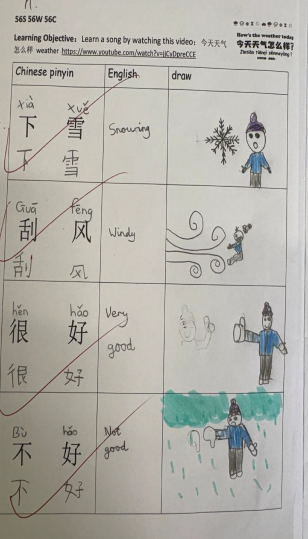 56S 56W 56C
How's the weather today
Learning Objective: Learn a song by watching this video: 今天天气
今天天气怎么样?
怎么样 weather https://www.youtube.com/watch?v=jlCvDpreCCE
Chinese pinyin English draw
xià xuě
下 雪
Snowing
下 雪
Guā fēng
刮 风
Windy
刮 风
hěn hǎo
Very
很 好
good
很 好
Bù hǎo
不 好
Not
good
不 好